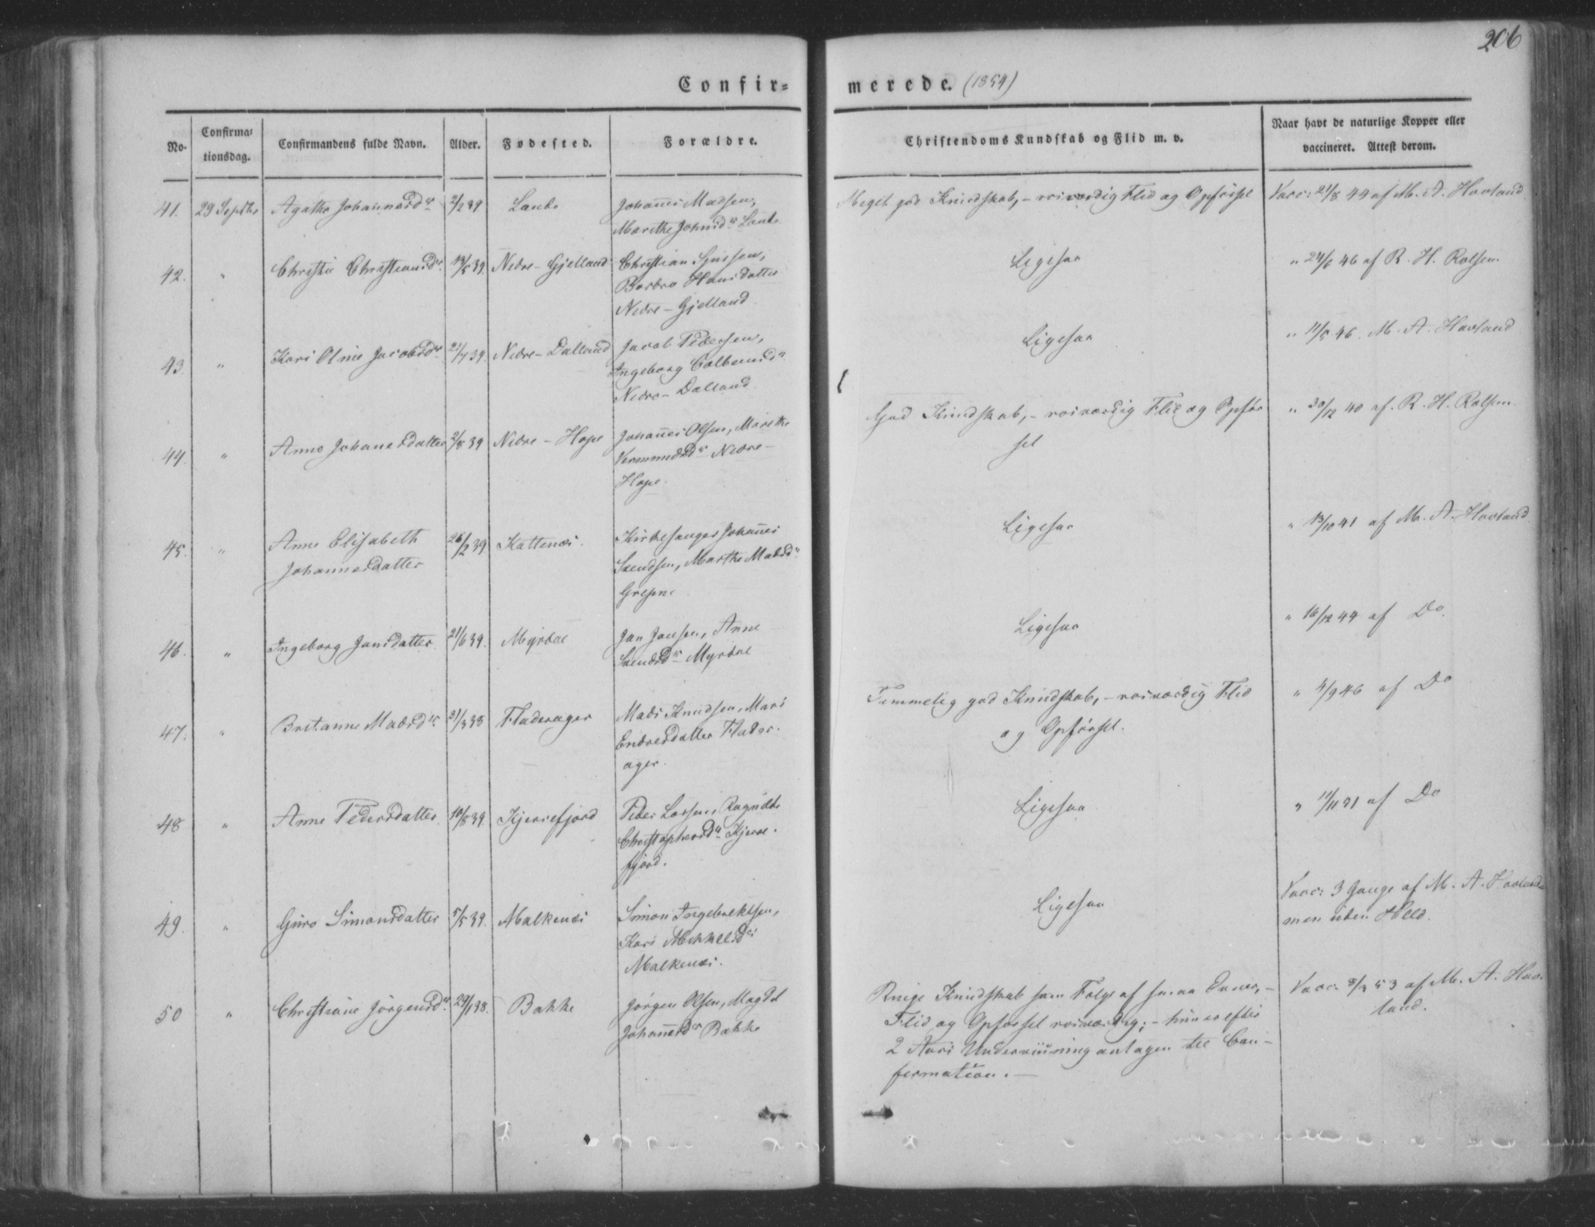 206
Confir-
merede. (1854)
No.
Confirma-
tionsdag.
Confirmandens fulde Navn.
Alder.
Fødested.
Forældre.
Christendoms Kundskab og Flid m. v.
Naar havt de naturlige Kopper eller
vaccineret. Attest derom.
41. 29 Septbr Agathe Johannesdr 39 Johannes Madsen,
Marithe
Meget god Kundskab, – roesværdig Flid og Opførsel
Vacc: 21/8 44 af M. A. Hovland
42. " Christie Christiansdr 39 Nedre-Gjelland Christian
Barbro Hansdatter
Nedre-Gjelland
Ligesaa
" 24/6 46 af R. H. Rolfsen
43 " Kari Oline Jacobsdr 39 Nedre-Dalland Jacob Pedersen,
Ingeborg
Nedre-Dalland
Ligesaa
" 11/5 46. M. A. Hovland
44 " Anne Johannesdatter 2/8 39 Nedre-Hope Johannes Olsen, Marithe
Nedre-
Hope.
God Kundskab, – roesværdig Flid og Opfør
sel
" 30/12 40 af. R. H. Rolfsen
45. " Anne Elisabeth
Johannesdatter
26/2 39 Kattenæs. Kirkesanger Johannes
Svendsen, Marthe Madsdr
Ligesaa
" 13/10 41 af M. A. Hovland
46. " Ingeborg Jansdatter 21/6 39. Myrdal Jan Jansen, Anne
Svendsdr Myrdal
Ligesaa
" 16/12 44 af Do.
47. " Britanne Madsdr Fladerager Mads Knudsen, Mari
Endresdatter Flader-
ager.
Temmelig god Kundskab, – roesværdig Flid
og Opførsel.
" 4/9 46 af Do
48 " Anne Pedersdatter 10/5 39. Kjerrefjord Peder Larsen, Ragnilde
Christophersdr Kjerre-
fjord.
Ligesaa
af Do
49. " Guro Simonsdatter 5/5 39. Malkenæs Simon Ingebrektsen,
Kari Mikkelsdr
Malkenæs.
Ligesaa
Vacc: 3 Gange af M. A. Hovland
men uden Held.
50 " Christiane Jørgensdr 38. Bakke Jørgen Olsen, Magdel
Johannesdr Bakke
Ringe Kundskab som Følge af smaa Evner, –
Flid og Opførsel roesværdig; – hun er efter
2 Aars Underviisning antagen til Con-
firmation. –
Vacc: 8/3 53 af M. A. Hov-
land.